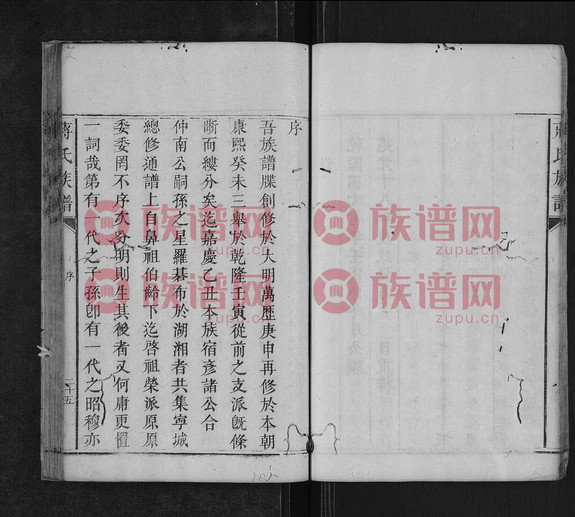 序
吾族譜牒創修於大明萬歷庚申再修於本朝
康熙癸未三舉於乾隆壬寅從前之支派旣條
晰而縷分矣迄嘉慶乙丑本族宿彥諸公合
仲南公嗣孫之星羅碁布於湖湘者共集寧城
總修通譜上自鼻祖伯齡下迄啓祖榮派原原
委委罔不序次分明則生其後者又何庸更置
一詞哉第有一代之子孫卽有一代之昭穆亦
蔣氏族譜
序
十五
族谱网
zupu.cn
族谱网
zupu.cn
族谱网
zupu.cn
族谱网
zupu.cn